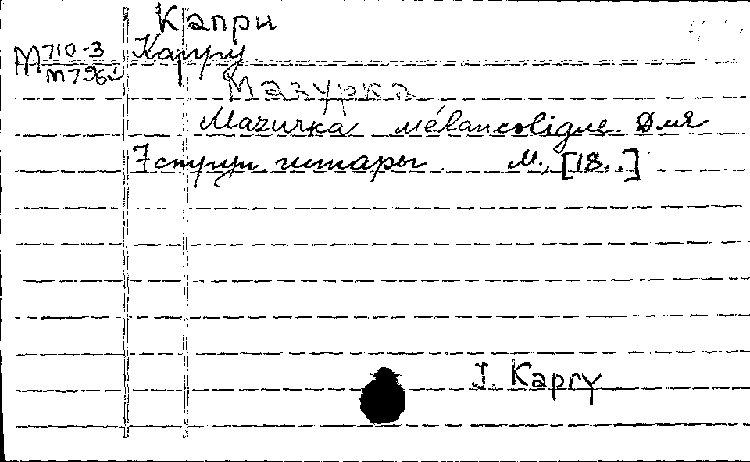 Капри
М 710-3 Карру
м796
Мазурка
Mazurka mélancoligue. Для
7 струн. гитары. М., [18..]
J. Kapry